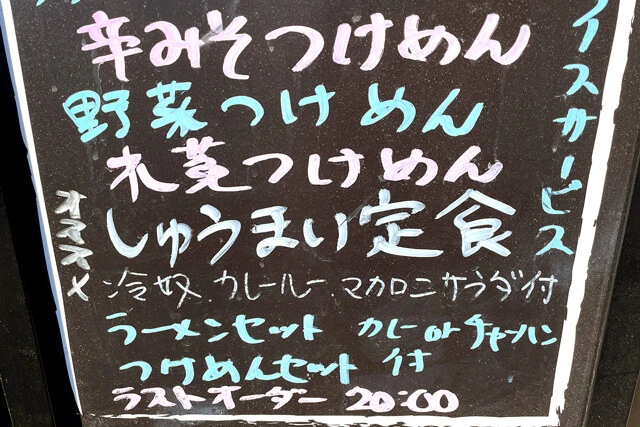 辛みそつけめん
野菜つけめん
つけめん
しゅうまい定食
冷奴.カレールー.マカロニサラダ付
ラーメンセット カレーorチャーハン
つけめんセット 付
ラストオーダー 20:00
オススメ
イスサービス